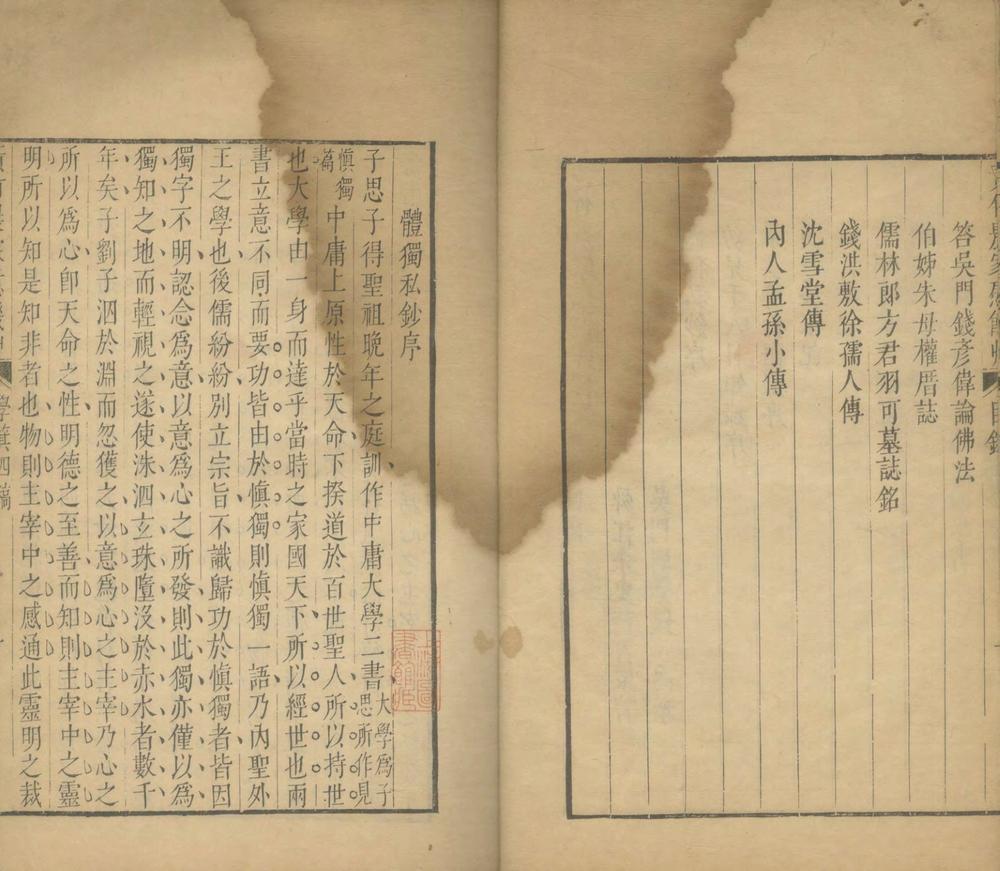 答吳門錢彥偉論佛法
伯姊朱母權厝誌
儒林郎方君羽可墓誌銘
錢洪敷徐孺人傳
沈雪堂傳
內人孟孫小傳
體獨私鈔序
子思子得聖祖晚年之庭訓作中庸大學二書大學為子思所作見
慎獨篇中庸上原性於天命下揆道於百世聖人所以持世
也大學由一身而達乎當時之家國天下所以經世也兩
書立意不同而要功皆由於慎獨則慎獨一語乃內聖外
王之學也後儒紛紛別立宗旨不識歸功於慎獨者皆因
獨字不明認念為意以意為心之所發則此獨亦僅以為
獨知之地而輕視之遂使洙泗玄珠墮沒於赤水者數千
年矣子劉子泗於淵而忽獲之以意為心之主宰乃心之
所以為心卽天命之性明德之至善而知則主宰中之靈
明所以知是知非者也物則主宰中之感通此靈明之裁